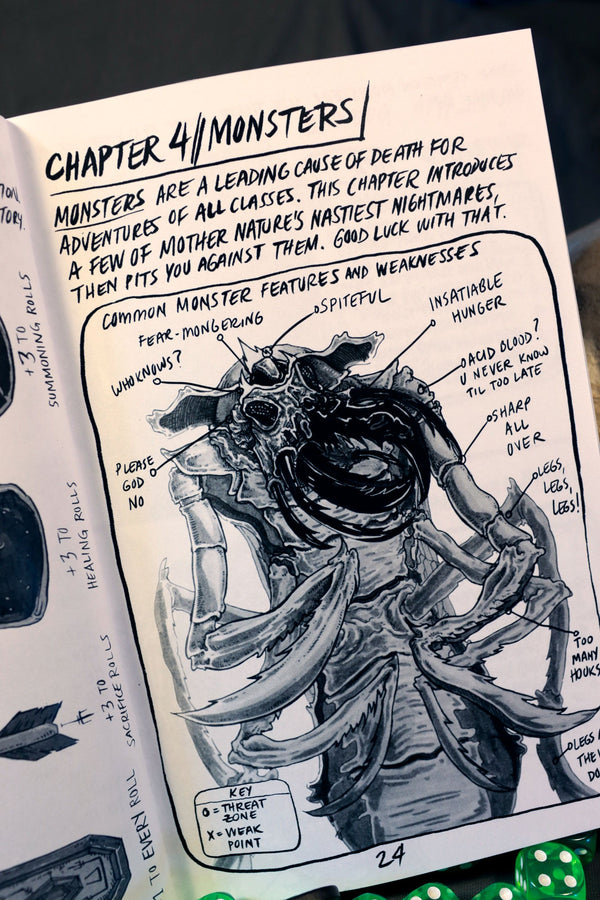 CHAPTER 4//MONSTERS
MONSTERS ARE A LEADING CAUSE OF DEATH FOR
ADVENTURES OF ALL CLASSES. THIS CHAPTER INTRODUCES
A FEW OF MOTHER NATURE'S NASTIEST NIGHTMARES,
THEN PITS YOU AGAINST THEM. GOOD LUCK WITH THAT.
COMMON MONSTER FEATURES AND WEAKNESSES
FEAR-MONGERING
SPITEFUL
INSATIABLE
HUNGER
WHO KNOWS?
ACID BLOOD?
U NEVER KNOW
TIL TOO LATE
PLEASE
GOD
NO
SHARP
ALL
OVER
LEGS,
LEGS,
LEGS!
TOO
MANY
HOOKS
LEGS
KEY
O = THREAT
ZONE
X = WEAK
POINT
24
+3 TO
SUMMONING ROLLS
+3 TO
HEALING ROLLS
+3 TO
SACRIFICE ROLLS
TO EVERY ROLL